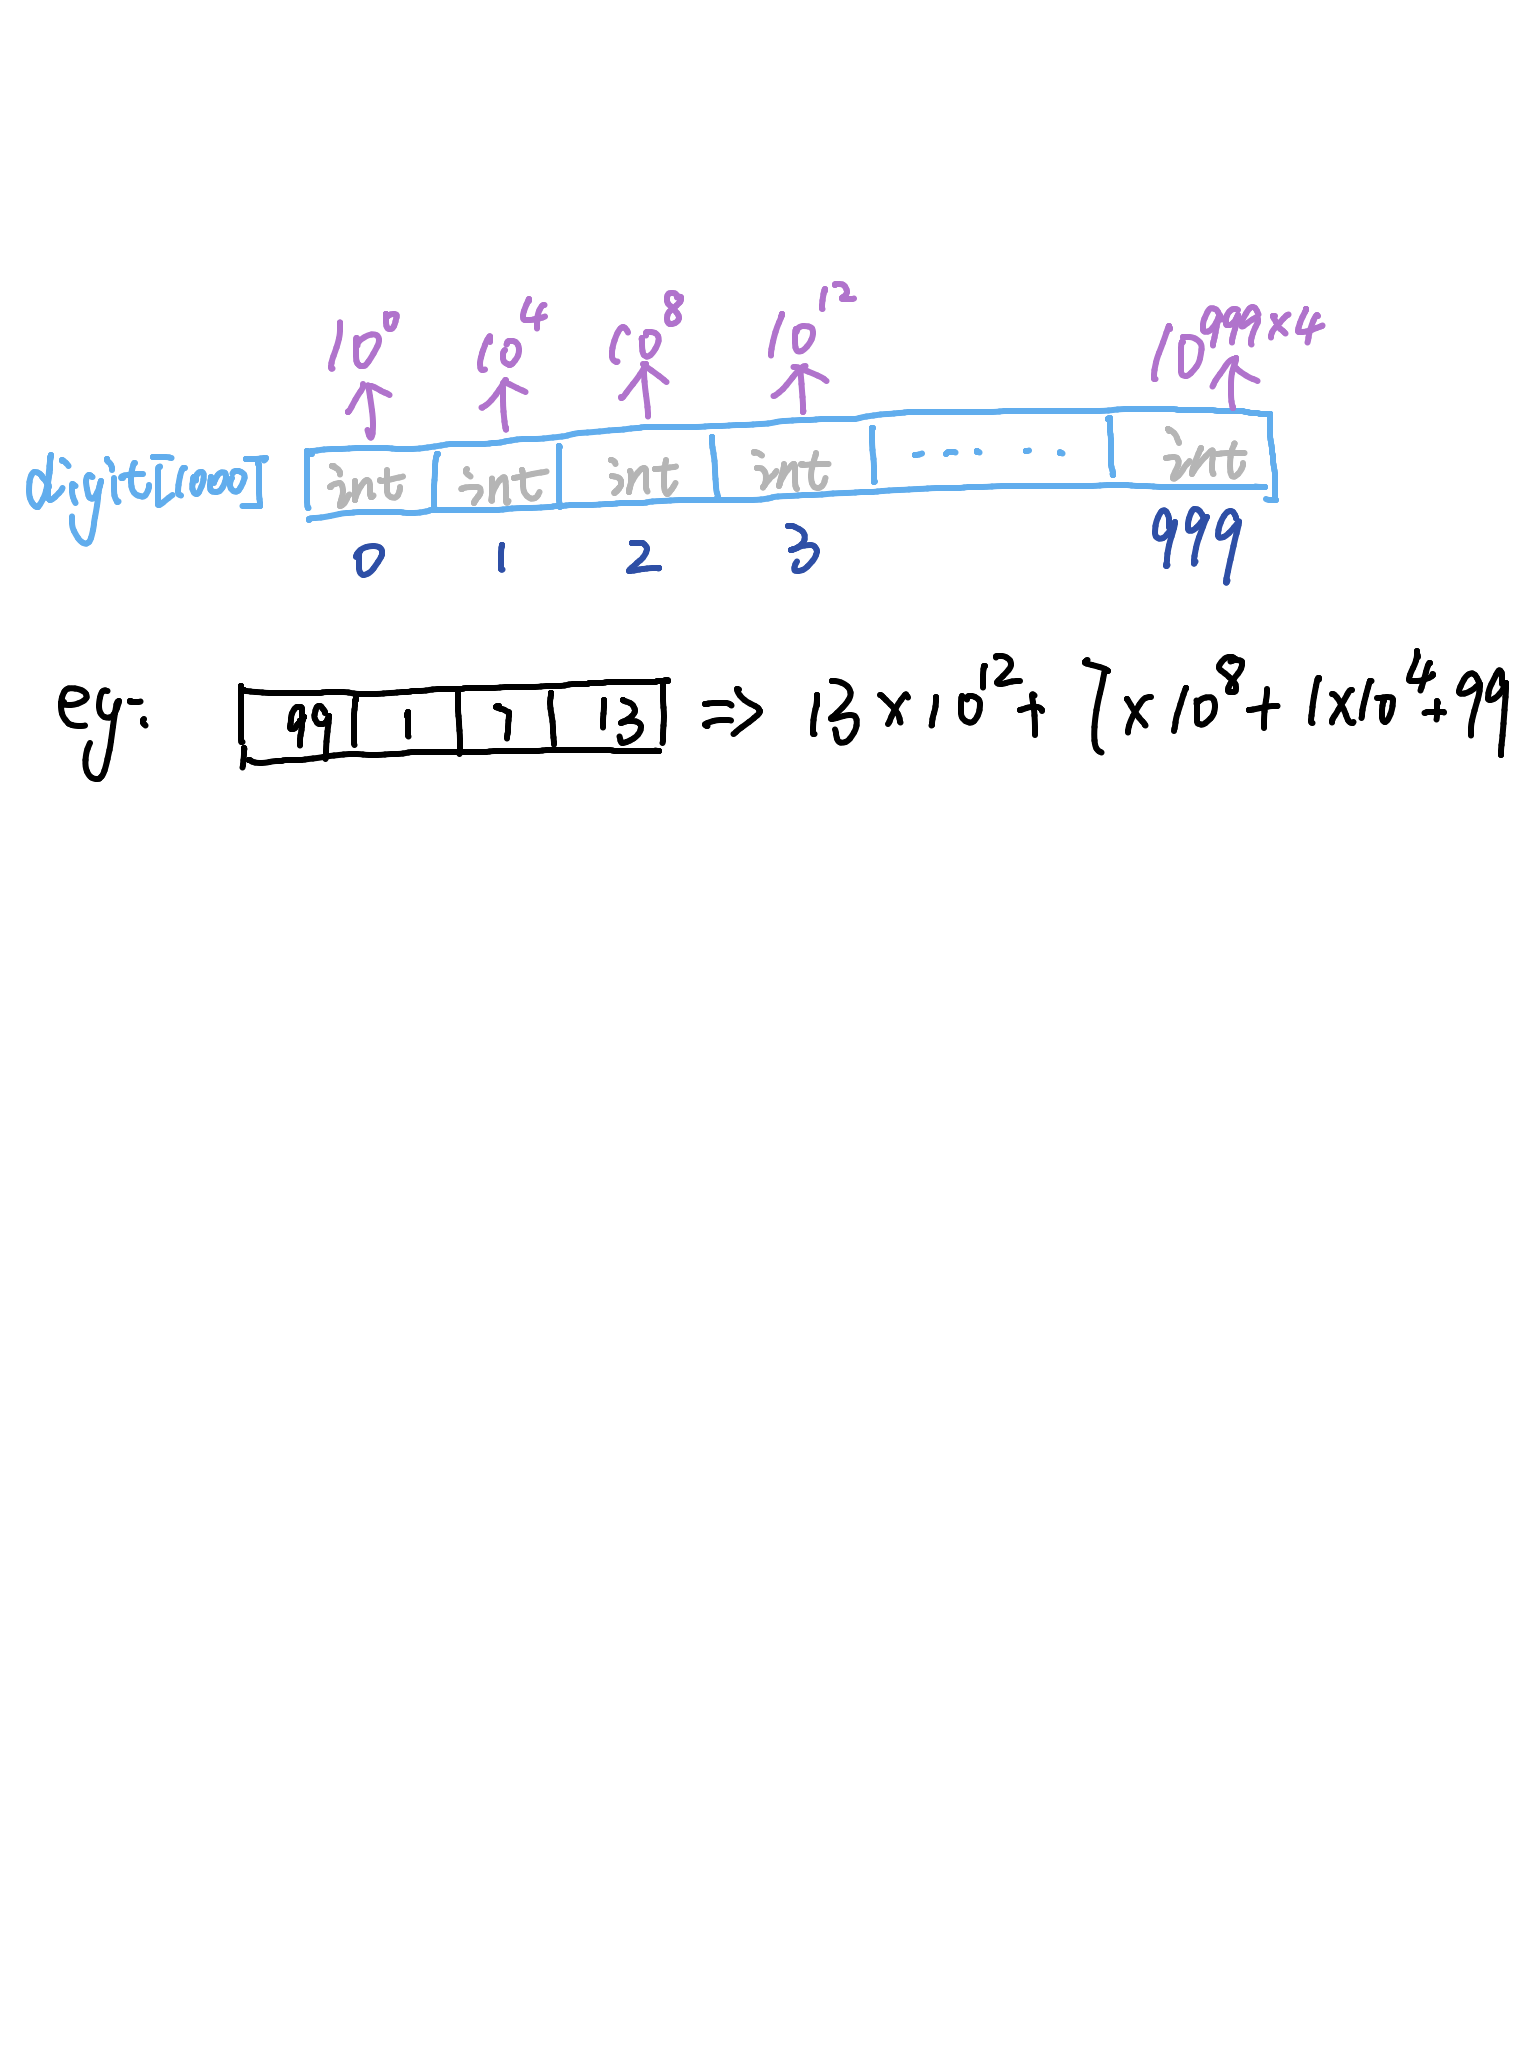 10⁰ 10⁴ 10⁸ 10¹² 10⁹⁹⁹ˣ⁴
digit[1000] int int int int ..... int
0 1 2 3 999
eg: 99 1 7 13 ⇒ 13 × 10¹² + 7 × 10⁸ + 1×10⁴ + 99